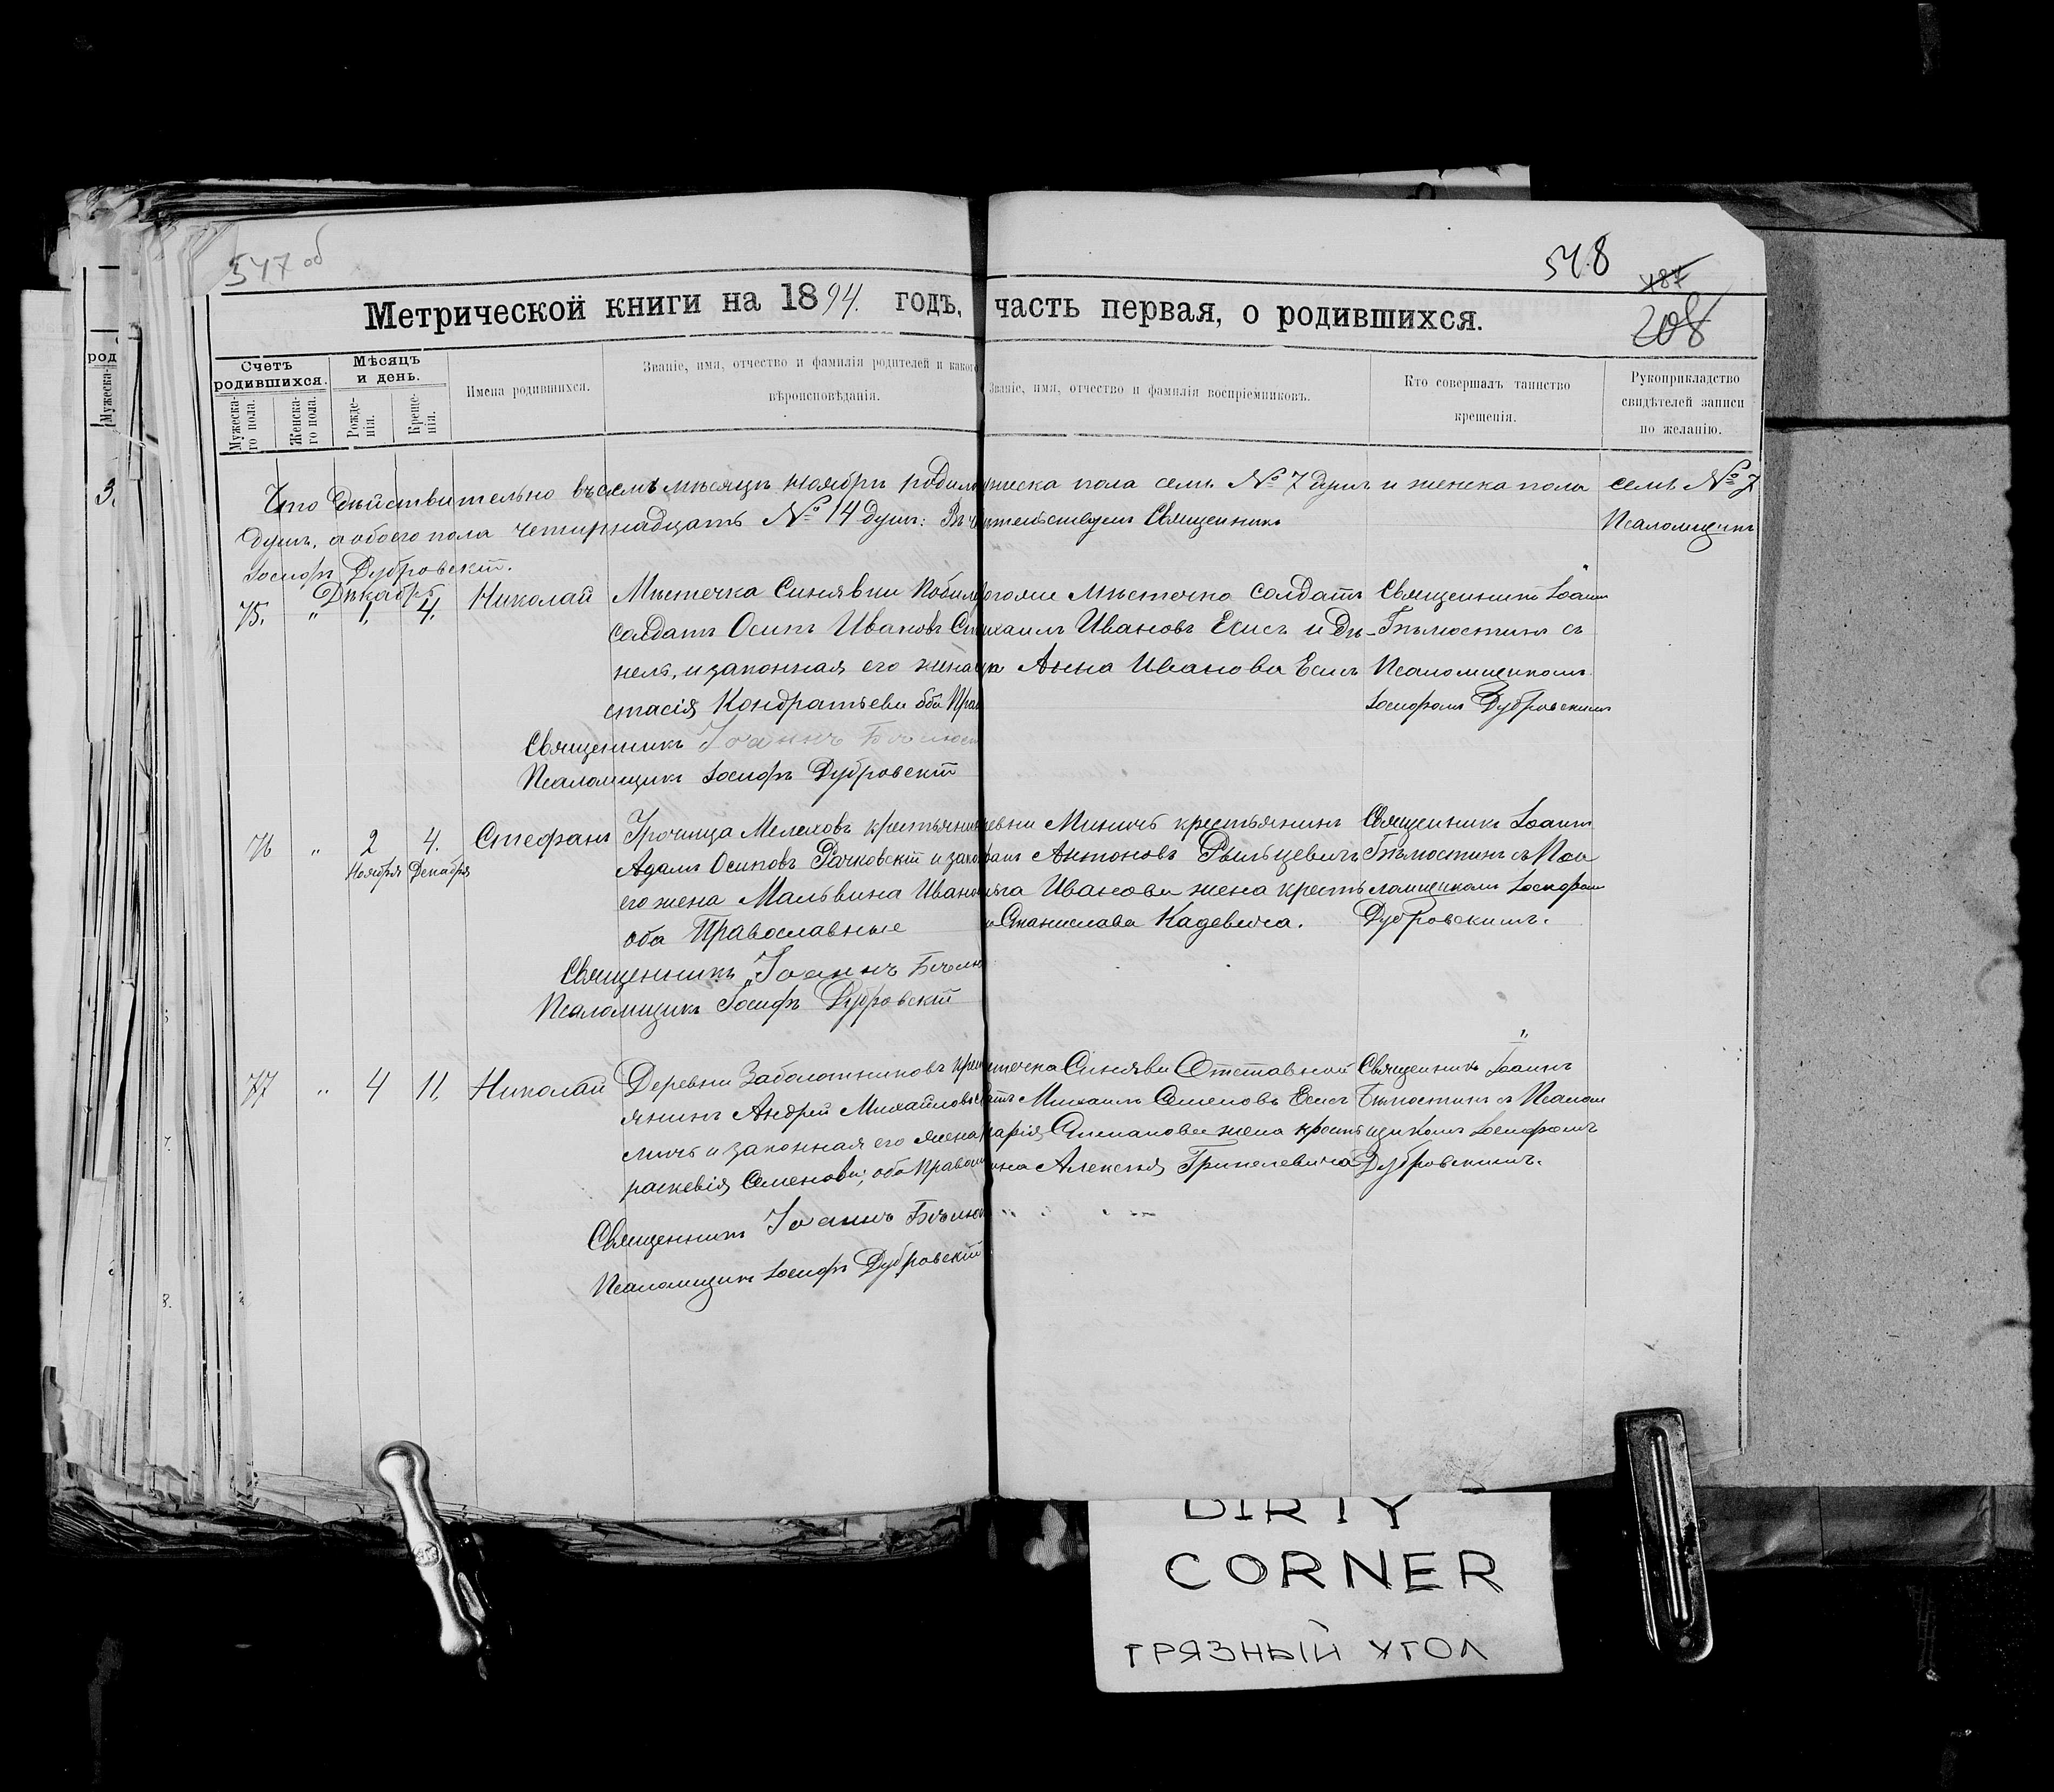 547 об
548
487
208
Метрической книги на 1894. годъ, часть первая, о родившихся.
Счетъ родившихся.
Мужеска-го пола.
Женска-го пола.
Мѣсяцъ и день.
Рожде-нія.
Креще-нія.
Имена родившихся.
Званіе, имя, отчество и фамилія родителей и какого
вѣроисповѣданія.
Званіе, имя, отчество и фамилія воспріемниковъ.
Кто совершалъ таинство
крещенія.
Рукоприкладство
свидѣтелей записи
по желанію.
род
Мужеска-
3.
Что дѣйствительно въ семъ мѣсяцѣ ноябрѣ родил мужеска пола семь № 7 душъ и женска пола семь № 7
душъ, а обоего пола четырнадцать № 14 душъ: Священникъ
Псаломщикъ
Іосифъ Дубровскій.
Декабрь
75. " 1. 4. Николай
Мѣстечка Синявки
солдатъ Осипъ Ивановъ
нель, и законная его жена
стасія Кондратьева оба Прав
тогоже Мѣстечка солдатъ
ихаилъ Ивановъ Есисъ и Дѣ-
Анна Иванова Есисъ
Священникъ Іоаннъ
Бѣлюстинъ съ
Псаломщикомъ
Іосифомъ Дубровскимъ
Священникъ Іоаннъ Бѣлюст
Псаломщикъ Іосифъ Дубровскій
76 " 2 Ноября 4. Декабря Стефанъ
Урочища Мелеховъ крестьянин
Адамъ Осиповъ Рачковскій и закон
его жена Мальвина Иванов
оба Православные
евни Миничъ крестьянинъ
Антоновъ Рыльцевичъ
Иванова жена кресть
Станислава Кадевича.
Священникъ Іоаннъ
Бѣлюстинъ съ Пса
ломщикомъ Іосифомъ
Дубровскимъ.
Священникъ Іоаннъ Бѣлю
Псаломщикъ Іосифъ Дубровскій
77 " 4 11. Николай
Деревни Заболотниковъ крест
янинъ Андрей Михайловъ
и законная его жена
раскевія Семенова; оба Правосл
стечка Синявки Отставной
Михаилъ Семеновъ Есисъ
арія Степанова жена кресть
ина Алексѣя Грипелевича
Священникъ Іоаннъ
Бѣлюстинъ съ Псалом
щикомъ Іосифомъ
Дубровскимъ.
Священникъ Іоаннъ Бѣлюс
Псаломщикъ Іосифъ Дубровскій
DIRTY
CORNER
ГРЯЗНЫЙ УГОЛ